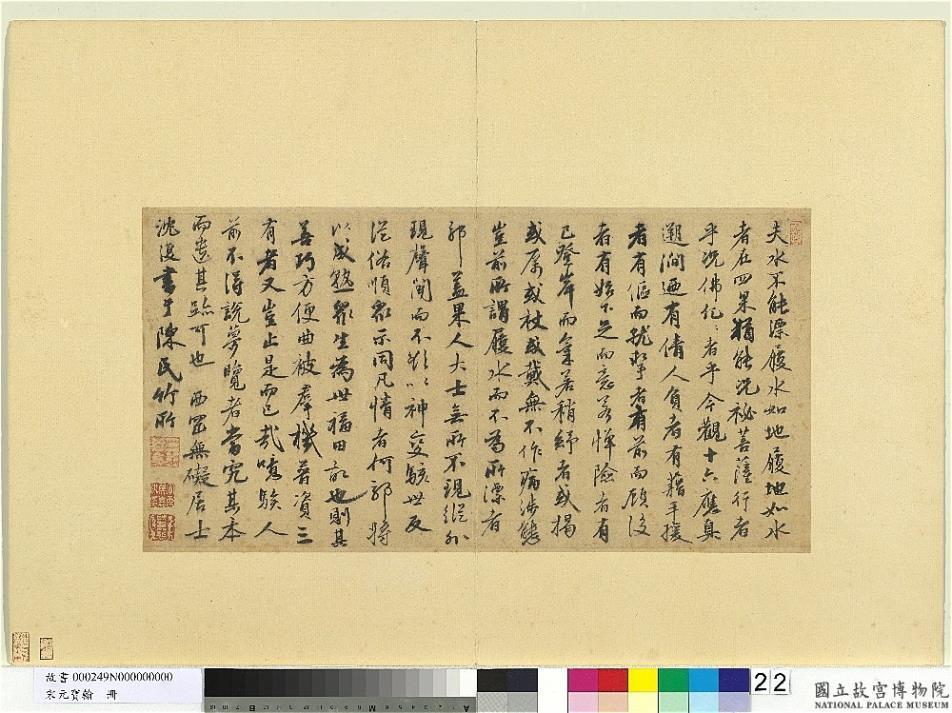 夫水不能漂履水如地履地如水
者在四果猶能況祕菩薩行者
乎況佛化〻者乎今觀十六應真
遡澗過有倩人負者有藉手援
者有傴而就挈者有前而顧後
者有始下足而意若憚險者有
已登岸而氣若稍紓者或揭
或厲或杖或戴無不作病涉態
豈前所謂履水而不為所漂者
耶蓋果人大士無所不現縱外
現聲聞而不以神變駭世反
從俗順眾示同凡情者何耶將
以成熟眾生為世福田故也則其
善巧方便曲被群機普資三
有者又豈止是而已哉噫駿人
前不得說夢覽者當究其本
而遺其跡可也 西罡無礙居士
沈
書于陳氏竹所
故書 000249N000000000
宋元寶翰 冊
22
國立故宮博物院
NATIONAL PALACE MUSEUM